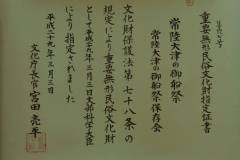 重要無形民俗文化財指定証書
常陸大津の御船祭
常陸大津の御船祭保存会
文化財保護法第七十八条の
規定により重要無形民俗文化財
として平成二十九年三月三日文部科学大臣
により指定されました
平成二十九年三月三日
文化庁長官 宮田亮平